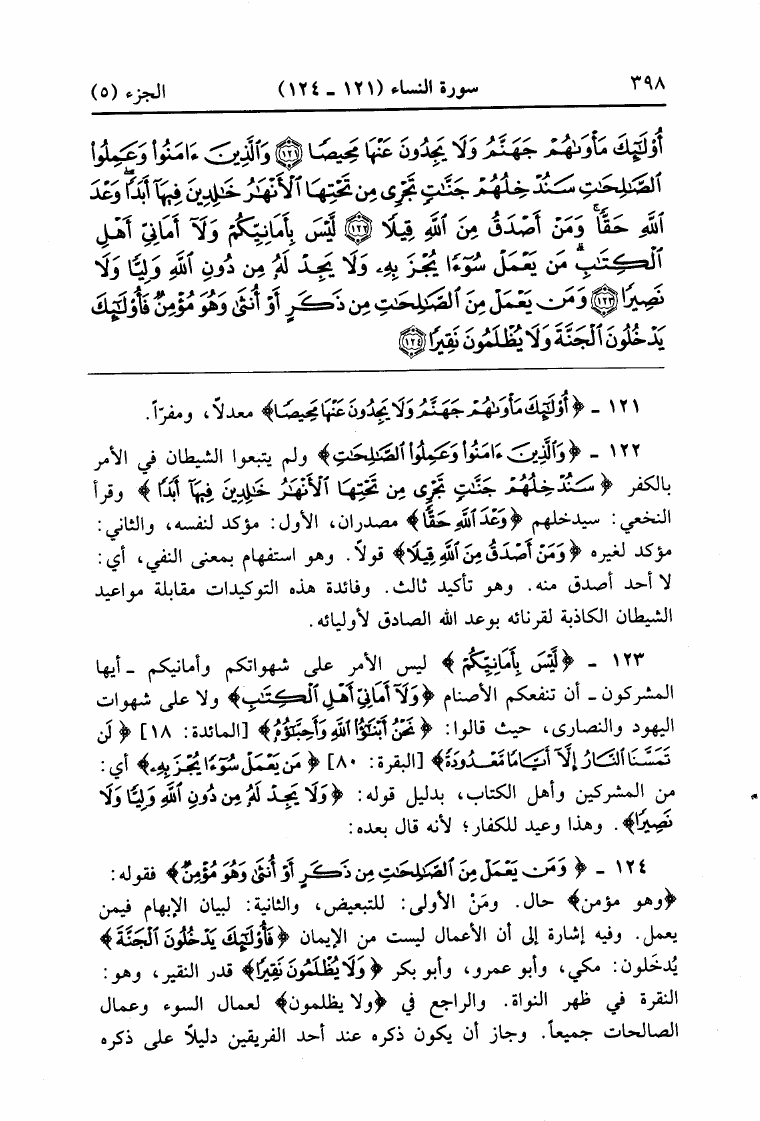 ٣٩٨ سورة النساء (١٢١ ـ ١٢٤) الجزء (٥)
أُوْلَٰٓئِكَ مَأْوَىٰهُمْ جَهَنَّمُ وَلَا يَجِدُونَ عَنْهَا مَحِيصًا ١٢١ وَالَّذِينَ ءَامَنُوا۟ وَعَمِلُوا۟
الصَّٰلِحَٰتِ سَنُدْخِلُهُمْ جَنَّٰتٍ تَجْرِى مِن تَحْتِهَا الْأَنْهَٰرُ خَٰلِدِينَ فِيهَآ أَبَدًا ۖ وَعْدَ
اللَّهِ حَقًّا ۚ وَمَنْ أَصْدَقُ مِنَ اللَّهِ قِيلًا ١٢٢ لَّيْسَ بِأَمَانِيِّكُمْ وَلَآ أَمَانِىِّ أَهْلِ
الْكِتَٰبِ ۗ مَن يَعْمَلْ سُوٓءًا يُجْزَ بِهِۦ وَلَا يَجِدْ لَهُۥ مِن دُونِ اللَّهِ وَلِيًّا وَلَا
نَصِيرًا ١٢٣ وَمَن يَعْمَلْ مِنَ الصَّٰلِحَٰتِ مِن ذَكَرٍ أَوْ أُنثَىٰ وَهُوَ مُؤْمِنٌ فَأُو۟لَٰٓئِكَ
يَدْخُلُونَ الْجَنَّةَ وَلَا يُظْلَمُونَ نَقِيرًا ١٢٤
١٢١ ـ ﴿أُوْلَٰٓئِكَ مَأْوَىٰهُمْ جَهَنَّمُ وَلَا يَجِدُونَ عَنْهَا مَحِيصًا﴾ معدلاً، ومفرّاً.
١٢٢ ـ ﴿وَالَّذِينَ ءَامَنُوا۟ وَعَمِلُوا۟ الصَّٰلِحَٰتِ﴾ ولم يتبعوا الشيطان في الأمر
بالكفر ﴿سَنُدْخِلُهُمْ جَنَّٰتٍ تَجْرِى مِن تَحْتِهَا الْأَنْهَٰرُ خَٰلِدِينَ فِيهَآ أَبَدًا﴾ وقرأ
النخعي: سيدخلهم ﴿وَعْدَ اللَّهِ حَقًّا﴾ مصدران، الأول: مؤكد لنفسه، والثاني:
مؤكد لغيره ﴿وَمَنْ أَصْدَقُ مِنَ اللَّهِ قِيلًا﴾ قولاً. وهو استفهام بمعنى النفي، أي:
لا أحد أصدق منه. وهو تأكيد ثالث. وفائدة هذه التوكيدات مقابلة مواعيد
الشيطان الكاذبة لقرنائه بوعد الله الصادق لأوليائه.
١٢٣ ـ ﴿لَّيْسَ بِأَمَانِيِّكُمْ﴾ ليس الأمر على شهواتكم وأمانيكم ـ أيها
المشركون ـ أن تنفعكم الأصنام ﴿وَلَآ أَمَانِىِّ أَهْلِ الْكِتَٰبِ﴾ ولا على شهوات
اليهود والنصارى، حيث قالوا: ﴿نَحْنُ أَبْنَٰٓؤُا۟ اللَّهِ وَأَحِبَّٰٓؤُهُ﴾ [المائدة: ١٨] ﴿لَن
تَمَسَّنَا النَّارُ إِلَّآ أَيَّامًا مَّعْدُودَةً﴾ [البقرة: ٨٠] ﴿مَن يَعْمَلْ سُوٓءًا يُجْزَ بِهِۦ﴾ أي:
من المشركين وأهل الكتاب، بدليل قوله: ﴿وَلَا يَجِدْ لَهُۥ مِن دُونِ اللَّهِ وَلِيًّا وَلَا
نَصِيرًا﴾. وهذا وعيد للكفار؛ لأنه قال بعده:
١٢٤ ـ ﴿وَمَن يَعْمَلْ مِنَ الصَّٰلِحَٰتِ مِن ذَكَرٍ أَوْ أُنثَىٰ وَهُوَ مُؤْمِنٌ﴾ فقوله:
﴿وهو مؤمن﴾ حال. ومَنْ الأولى: للتبعيض، والثانية: لبيان الإبهام فيمن
يعمل. وفيه إشارة إلى أن الأعمال ليست من الإيمان ﴿فَأُو۟لَٰٓئِكَ يَدْخُلُونَ الْجَنَّةَ﴾
يُدخَلون: مكي، وأبو عمرو، وأبو بكر ﴿وَلَا يُظْلَمُونَ نَقِيرًا﴾ قدر النقير، وهو:
النقرة في ظهر النواة. والراجع في ﴿ولا يظلمون﴾ لعمال السوء وعمال
الصالحات جميعاً. وجاز أن يكون ذكره عند أحد الفريقين دليلاً على ذكره